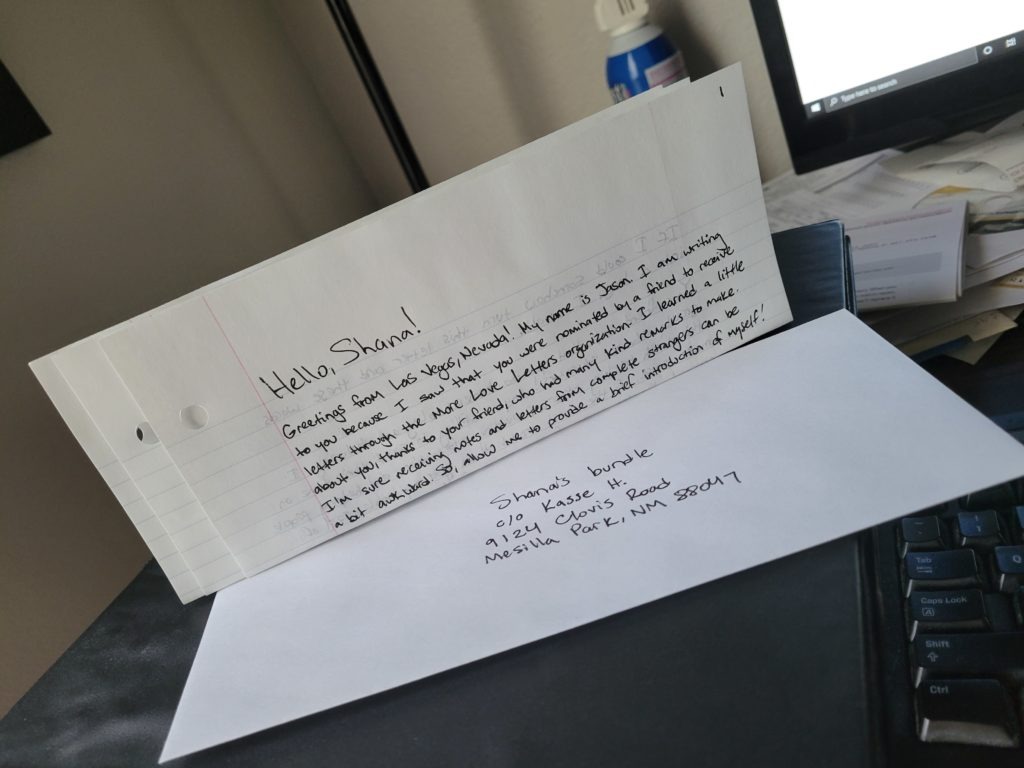 1
Hello, Shana!
Greetings from Las Vegas, Nevada! My name is Jason. I am writing
to you because I saw that you were nominated by a friend to receive
letters through the More Love Letters organization. I learned a little
about you, thanks to your friend, who had many kind remarks to make.
I'm sure receiving notes and letters from complete strangers can be
a bit awkward. So, allow me to provide a brief introduction of myself!
Shana's bundle
c/o Kasse H.
9124 Clovis Road
Mesilla Park, NM 88047
Type here to search
Tab
Caps Lock
A
Shift
Ctrl